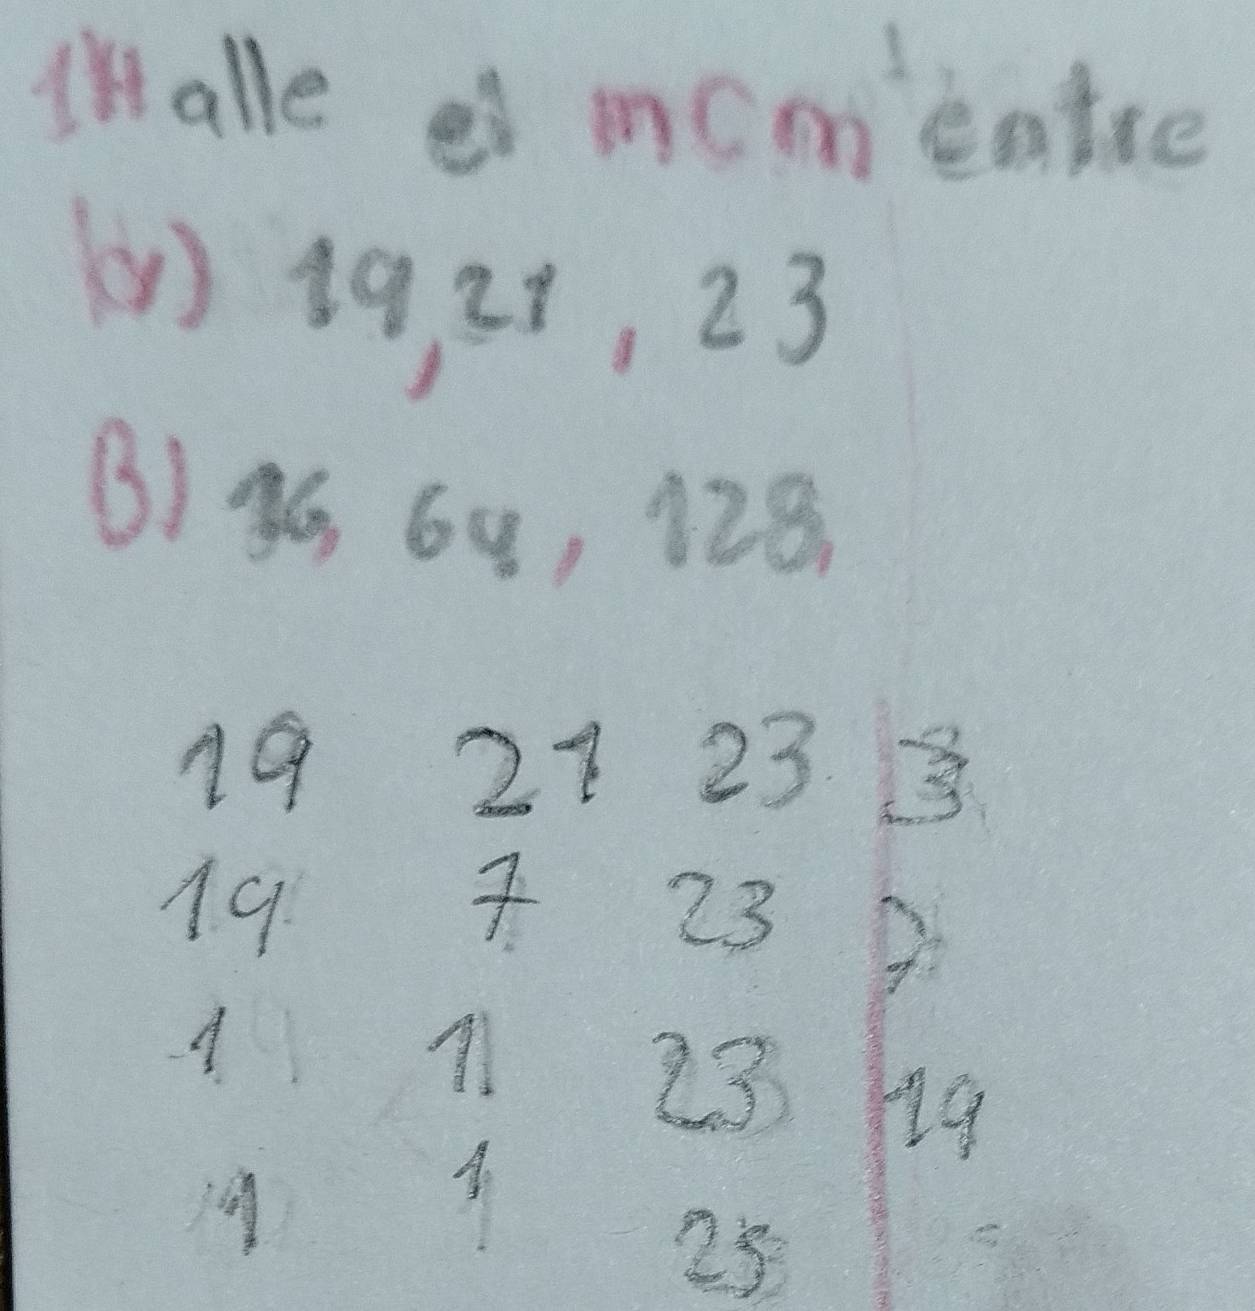 1 Halle el mcm entre
a) 19, 21, 23
B) 16, 64, 128,
19 21 23 3
19 7 23 7
1 1 23 19
1 1 23